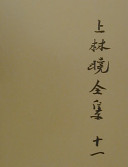 上林暁全集 十一